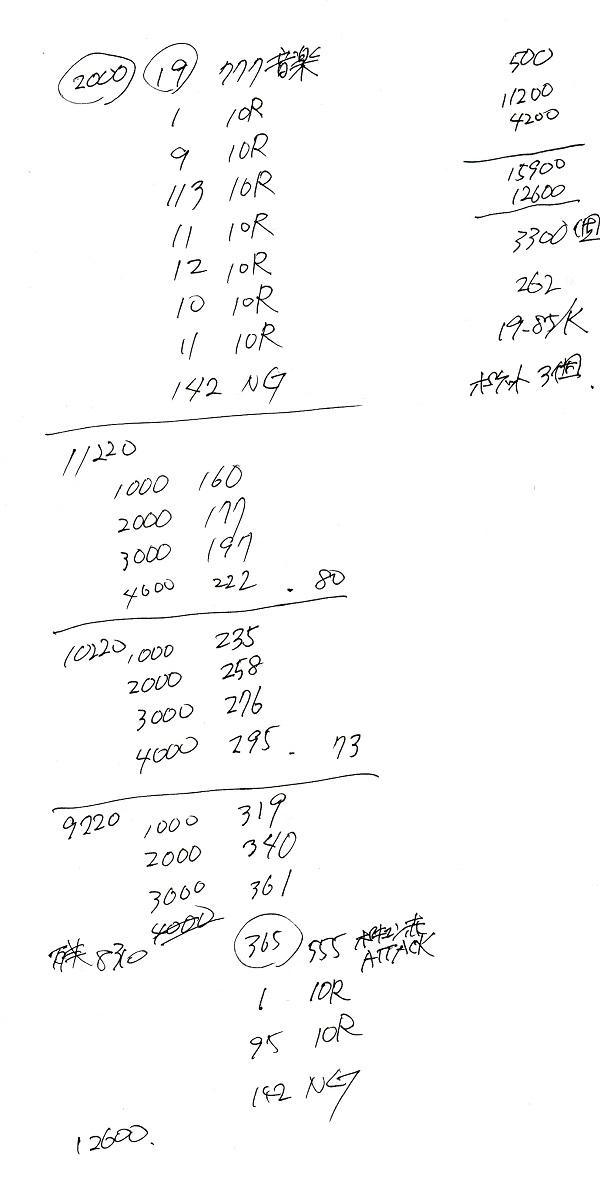 2000 19 777 音楽
1 10R
9 10R
113 10R
11 10R
12 10R
10 10R
11 10R
142 NG
11220
1000 160
2000 177
3000 197
4000 222 . 80
10220 1000 235
2000 258
3000 276
4000 295 . 73
9220 1000 319
2000 340
3000 361
4000
8310 365 555
ATTACK
1 10R
95 10R
142 NG
12600.
500
11200
4200
15900
12600
3300個
262
19.85/K
ポケット 3個.